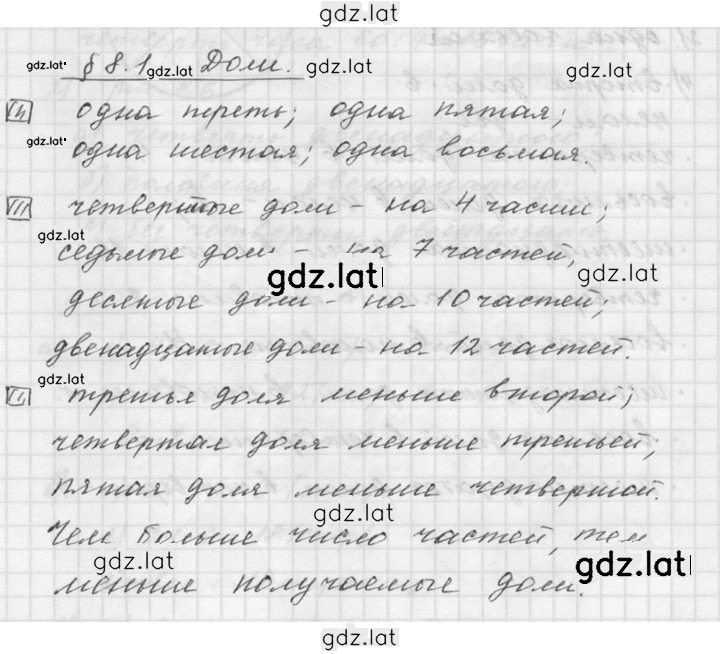 gdz.lat
gdz.lat § 8.1 gdz.lat Доли. gdz.lat gdz.lat
одна треть; одна пятая;
gdz.lat одна шестая; одна восьмая.
четвертые доли - на 4 части;
gdz.lat
седьмые доли - на 7 частей;
gdz.lat gdz.lat
десятые доли - на 10 частей;
двенадцатые доли - на 12 частей.
gdz.lat
третья доля меньше второй;
четвертая доля меньше третьей;
пятая доля меньше четвертой.
gdz.lat
Чем больше число частей, тем
gdz.lat gdz.lat
меньше получаемые доли.
gdz.lat